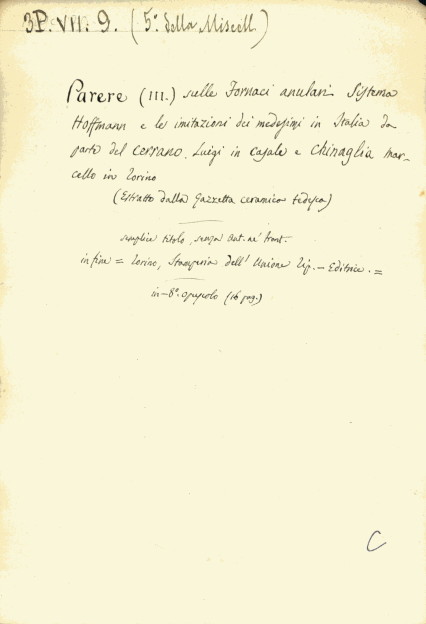 3P. VII. 9. (5º della Miscell.)
Parere (III.) sulle Fornaci anulari Sistema
Hoffmann e le imitazioni dei medesimi in Italia da
parte del Cerrano, Luigi in Casale e Chinaglia Mar-
cello in Torino
(Estratto dalla Gazzetta ceramica tedesca)
semplice titolo, senza aut. nè front.
in fine = Torino, Stamperia dell' Unione Tip. - Editrice. =
in-8º. opuscolo (16 pag.)
C